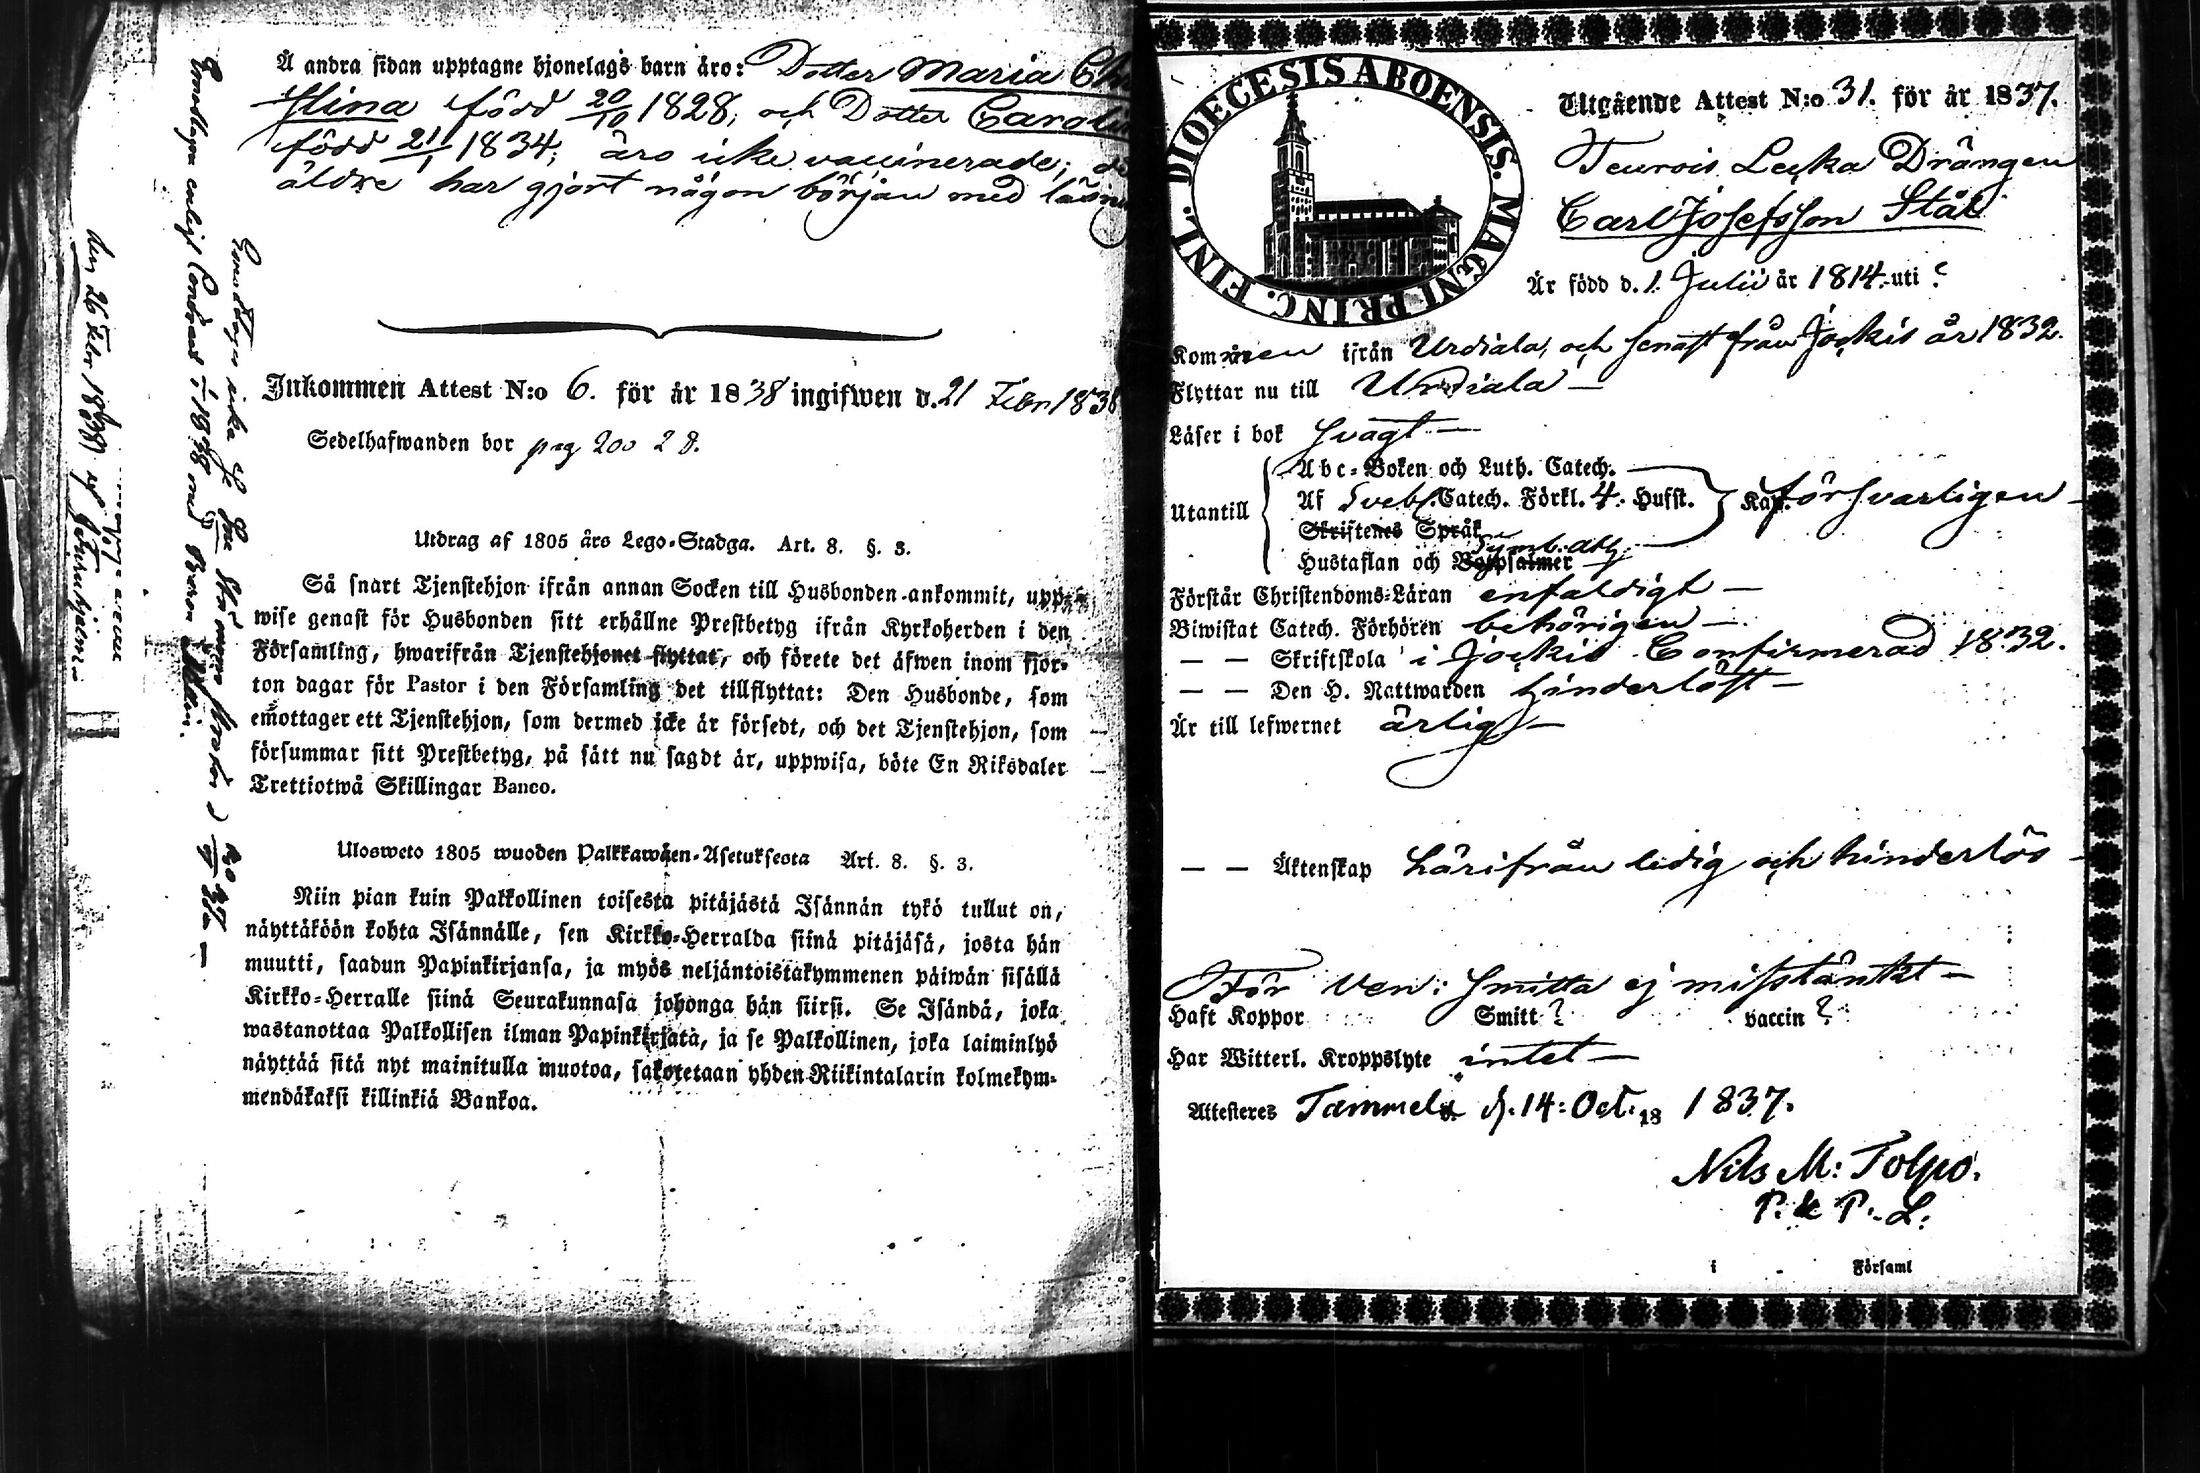 Å andra sidan upptagne hjonelags barn äro: Dotter Maria Chri
stina född 20/10 1828, och Dotter Carol
född 21/1 1834, äro icke vaccinerade; d
äldre har gjort någon början med läsn
Inkommen Attest N:o 6. för år 1838 ingifwen d. 21 Febr 1838
Sedelhafwanden bor pag 200 28.
Utdrag af 1805 års Lego-Stadga. Art. 8. §. 3.
Så snart Tjenstehjon ifrån annan Socken till Husbonden ankommit, upp-
wise genast för Husbonden sitt erhållne Prestbetyg ifrån Kyrkoherden i den
Församling, hwarifrån Tjenstehjonet flyttat, och förete det äfwen inom fjor-
ton dagar för Pastor i den Församling det tillflyttat: Den Husbonde, som
emottager ett Tjenstehjon, som dermed icke är försedt, och det Tjenstehjon, som
försummar sitt Prestbetyg, på sätt nu sagdt är, uppwisa, böte En Riksdaler
Trettiotwå Skillingar Banco.
Ulosweto 1805 wuoden Palkkawäen-Asetuksesta Art. 8. §. 3.
Niin pian kuin Palkollinen toisesta pitäjästä Isännän tykö tullut on,
näyttäköön kohta Isännälle, sen Kirkko-Herralda siinä pitäjäsä, josta hän
muutti, saadun Papinkirjansa, ja myös neljäntoistakymmenen päiwän sisällä
Kirkko-Herralle siinä Seurakunnasa johonga hän siirsi. Se Isändä, joka
wastanottaa Palkollisen ilman Papinkirjata, ja se Palkollinen, joka laiminlyö
näyttää sitä nyt mainitulla muotoa, sakotetaan yhden Riikintalarin kolmekym-
mendäkaksi killinkiä Bankoa.
den 26 Febr 1838
DIOECESIS ABOENSIS. MAGNI PRINC. FINL.
Utgående Attest N:o 31. för år 1837.
Teurois Lecka Drängen
Carl Josefsson Stål
Är född d. 1. Julii år 1814. uti ?
Kommen ifrån Urdiala, och senast från Jockis år 1832.
Flyttar nu till Urdiala —
Läser i bok svagt —
Utantill
Abc-Boken och Luth. Catech.
Af Svebs. Catech. Förkl. 4. Hufst. Kap. försvarligen —
Skriftenes Språk
Symb. Ath.
Hustaflan och Botpsalmer
Förstår Christendoms-Läran enfaldigt —
Biwistat Catech. Förhören behörigen —
— — Skriftskola i Jockis Confirmerad 1832.
— — Den H. Nattwarden hinderlöst —
Är till lefwernet ärlig —
— — Äktenskap härifrån ledig och hinderlös —
För Ven: Smitta ej misstänkt —
Haft Koppor Smitt ? vaccin ?
Har Witterl. Kroppslyte intet —
Attesteres Tammela d. 14: Oct. 18 1837.
Nils M: Tolpo.
P. & P. L.
i Församl